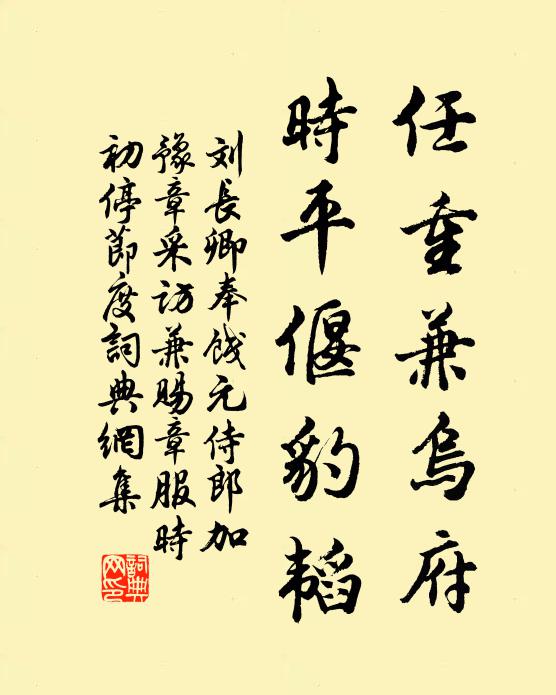 任重兼烏府
時平偃豹韬
刘長卿奉餞元侍郎加
豫章采访兼賜章服時
初停節度詞典網集
詞典
网印